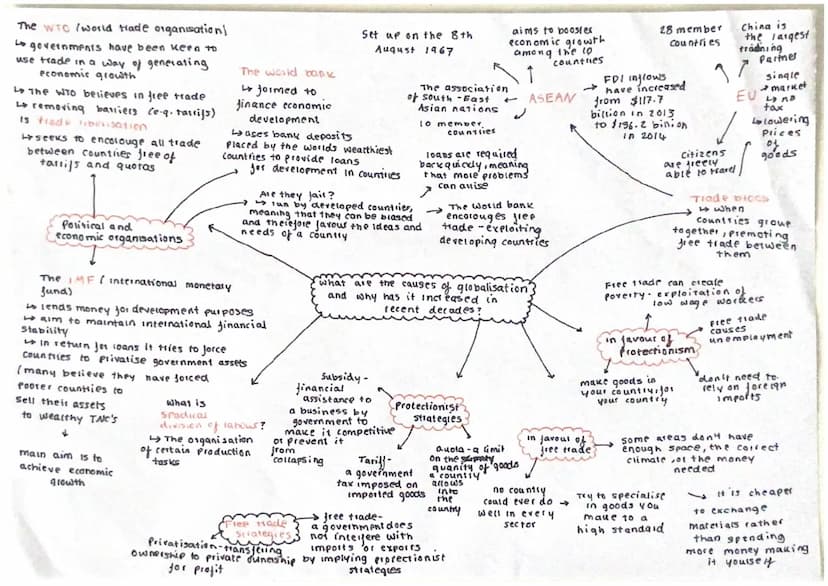 The WTO (World trade organisation)
↳ governments have been keen to
use trade in a way of generating
economic growth
↳ The WTO believes in free trade
↳ removing barriers (e.g. tariffs)
is trade liberlisation
↳ seeks to encourage all trade
between countries free of
tariffs and quotas
The world bank
↳ formed to
finance economic
development
↳ uses bank deposits
placed by the worlds wealthiest
countries to provide loans
for development in countries
Are they fair?
↳ run by developed countries,
meaning that they can be biased
and therefore favour the ideas and
needs of a country
loans are required
back quickly, meaning
that more problems
can arise
→ The World bank
encourages free
trade - exploiting
developing countries
Political and
economic organisations
The IMF (international monetary
fund)
↳ lends money for development purposes
↳ aim to maintain international financial
stability
↳ In return for loans it tries to force
countries to privatise government assets
(many believe they have forced
poorer countries to
sell their assets
to wealthy TNC's
main aim is to
achieve economic
growth
Set up on the 8th
August 1967
aims to booster
economic growth
among the 10
countries
The association
of South-East
Asian nations
10 member
countries
ASEAN
FDI inflows
have increased
from $117.7
billion in 2013
to $136.2 billion
in 2014
28 member
countries
China is
the largest
trading
partner
EU
single
market
↳ no
tax
↳ lowering
prices
of
goods
citizens
are freely
able to travel
Trade blocs
↳ when
countries group
together, promoting
free trade between
them
What are the causes of globalisation
and why has it increased in
recent decades?
Free trade can create
poverty - exploitation of
low wage workers
in favour of
Protectionism
Free trade
causes
unemployment
make goods in
your country, for
your country
don't need to
rely on foreign
imports
What is
spacial
division of labour?
↳ The organisation
of certain production
tasks
Subsidy -
financial
assistance to
a business by
government to
make it competitive
or prevent it
from
collapsing
Protectionist
strategies
Tariff-
a government
tax imposed on
imported goods
Quota - a limit
on the
quantity of goods
a country
allows
into
the
country
in favour of
free trade
some areas don't have
enough space, the correct
climate, or the money
needed
no country
could ever do
well in every
sector
→ Try to specialise
in goods you
make to a
high standard
it is cheaper
to exchange
materials rather
than spending
more money making
it yourself
Free trade
strategies
free trade-
a government does
not interfere with
imports or exports
by implying protectionist
strategies
Privatisation - transfering
ownership to private ownership
for profit